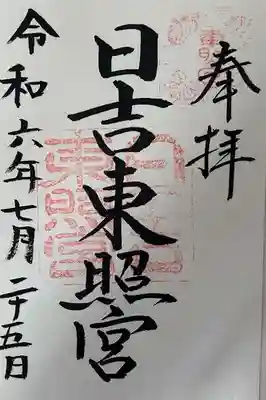 奉拝
日吉東照宮
令和六年七月二十五日